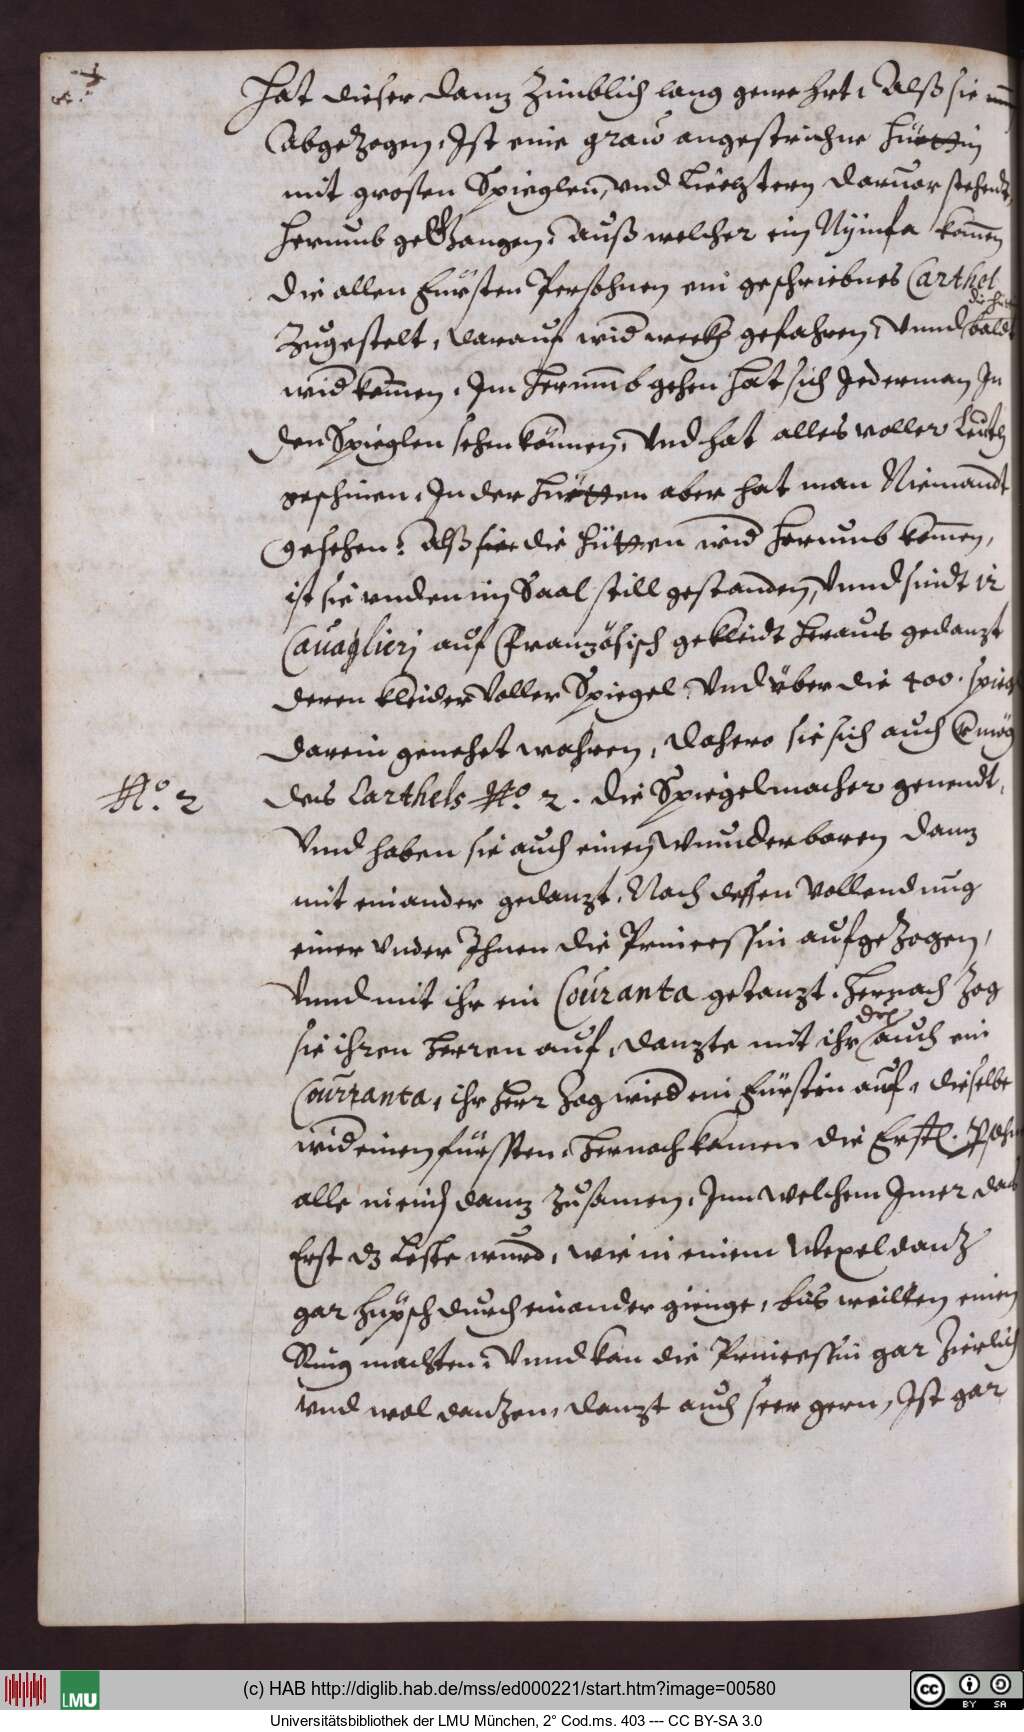 hat dieser danz Zimblich lang gewehrt, Alß sie nun
abgeZogen, Ist eine graw angestrichne hüetten
mit grossen Spieglen, vnd Liechtern daruor stehendt,
herumb geGangen, auß welcher ein Nÿmfa kom̄en
die allen Fürsten Persohnen ein geschriebnes Carthel
Zugestelt, darauf wid weckh gefahren, vnnd bald
die hüt
wid kom̄en, Im herumb gehen hat sich Jederman In
den Spieglen sehen können, Vnd hat alles voller Leuth
geschinen, In der hüetten aber hat man Niemandt
gesehen: Alß die hütten wid herumb kom̄en,
ist sie vnden im Saal still gestanden, Vnnd sindt 12
Cauaglieri auf Französisch gekleidt heraus gedanzt
deren kleider Voller Spiegel, Vnd über die 400. Spieg
darein genehet wahren, dahero sie sich auch
No. 2
des Carthels No. 2. die Spiegelmacher genendt,
Vnnd haben sie auch einen wunderbaren danz
mit einander gedanzt, Nach dessen Vollendung
einer vnder Ihnen die Princessin aufgeZogen,
Vnnd mit ihr ein Couranta getanzt, hernach Zog
sie ihren herren auf, danzte mit ihr auch ein
Courranta, ihr herr Zog wied ein Fürstin auf, dieselbe
wid einen fürssten, hernach kamen die Erstl.
alle in eine danz Zusamen, Inn welchem Imer das
Erst dz leste wurd, wie in einem Wexeldanz
gar hüpsch durch einander gienge, bis weillen einen
Ring machten, Vnnd kan die Princessin gar Zierlich
vnd wol danzen, danzt auch seer gern, Ist gar
(c) HAB http://diglib.hab.de/mss/ed000221/start.htm?image=00580
LMU
cc BY SA
Universitätsbibliothek der LMU München, 2° Cod.ms. 403 --- CC BY-SA 3.0